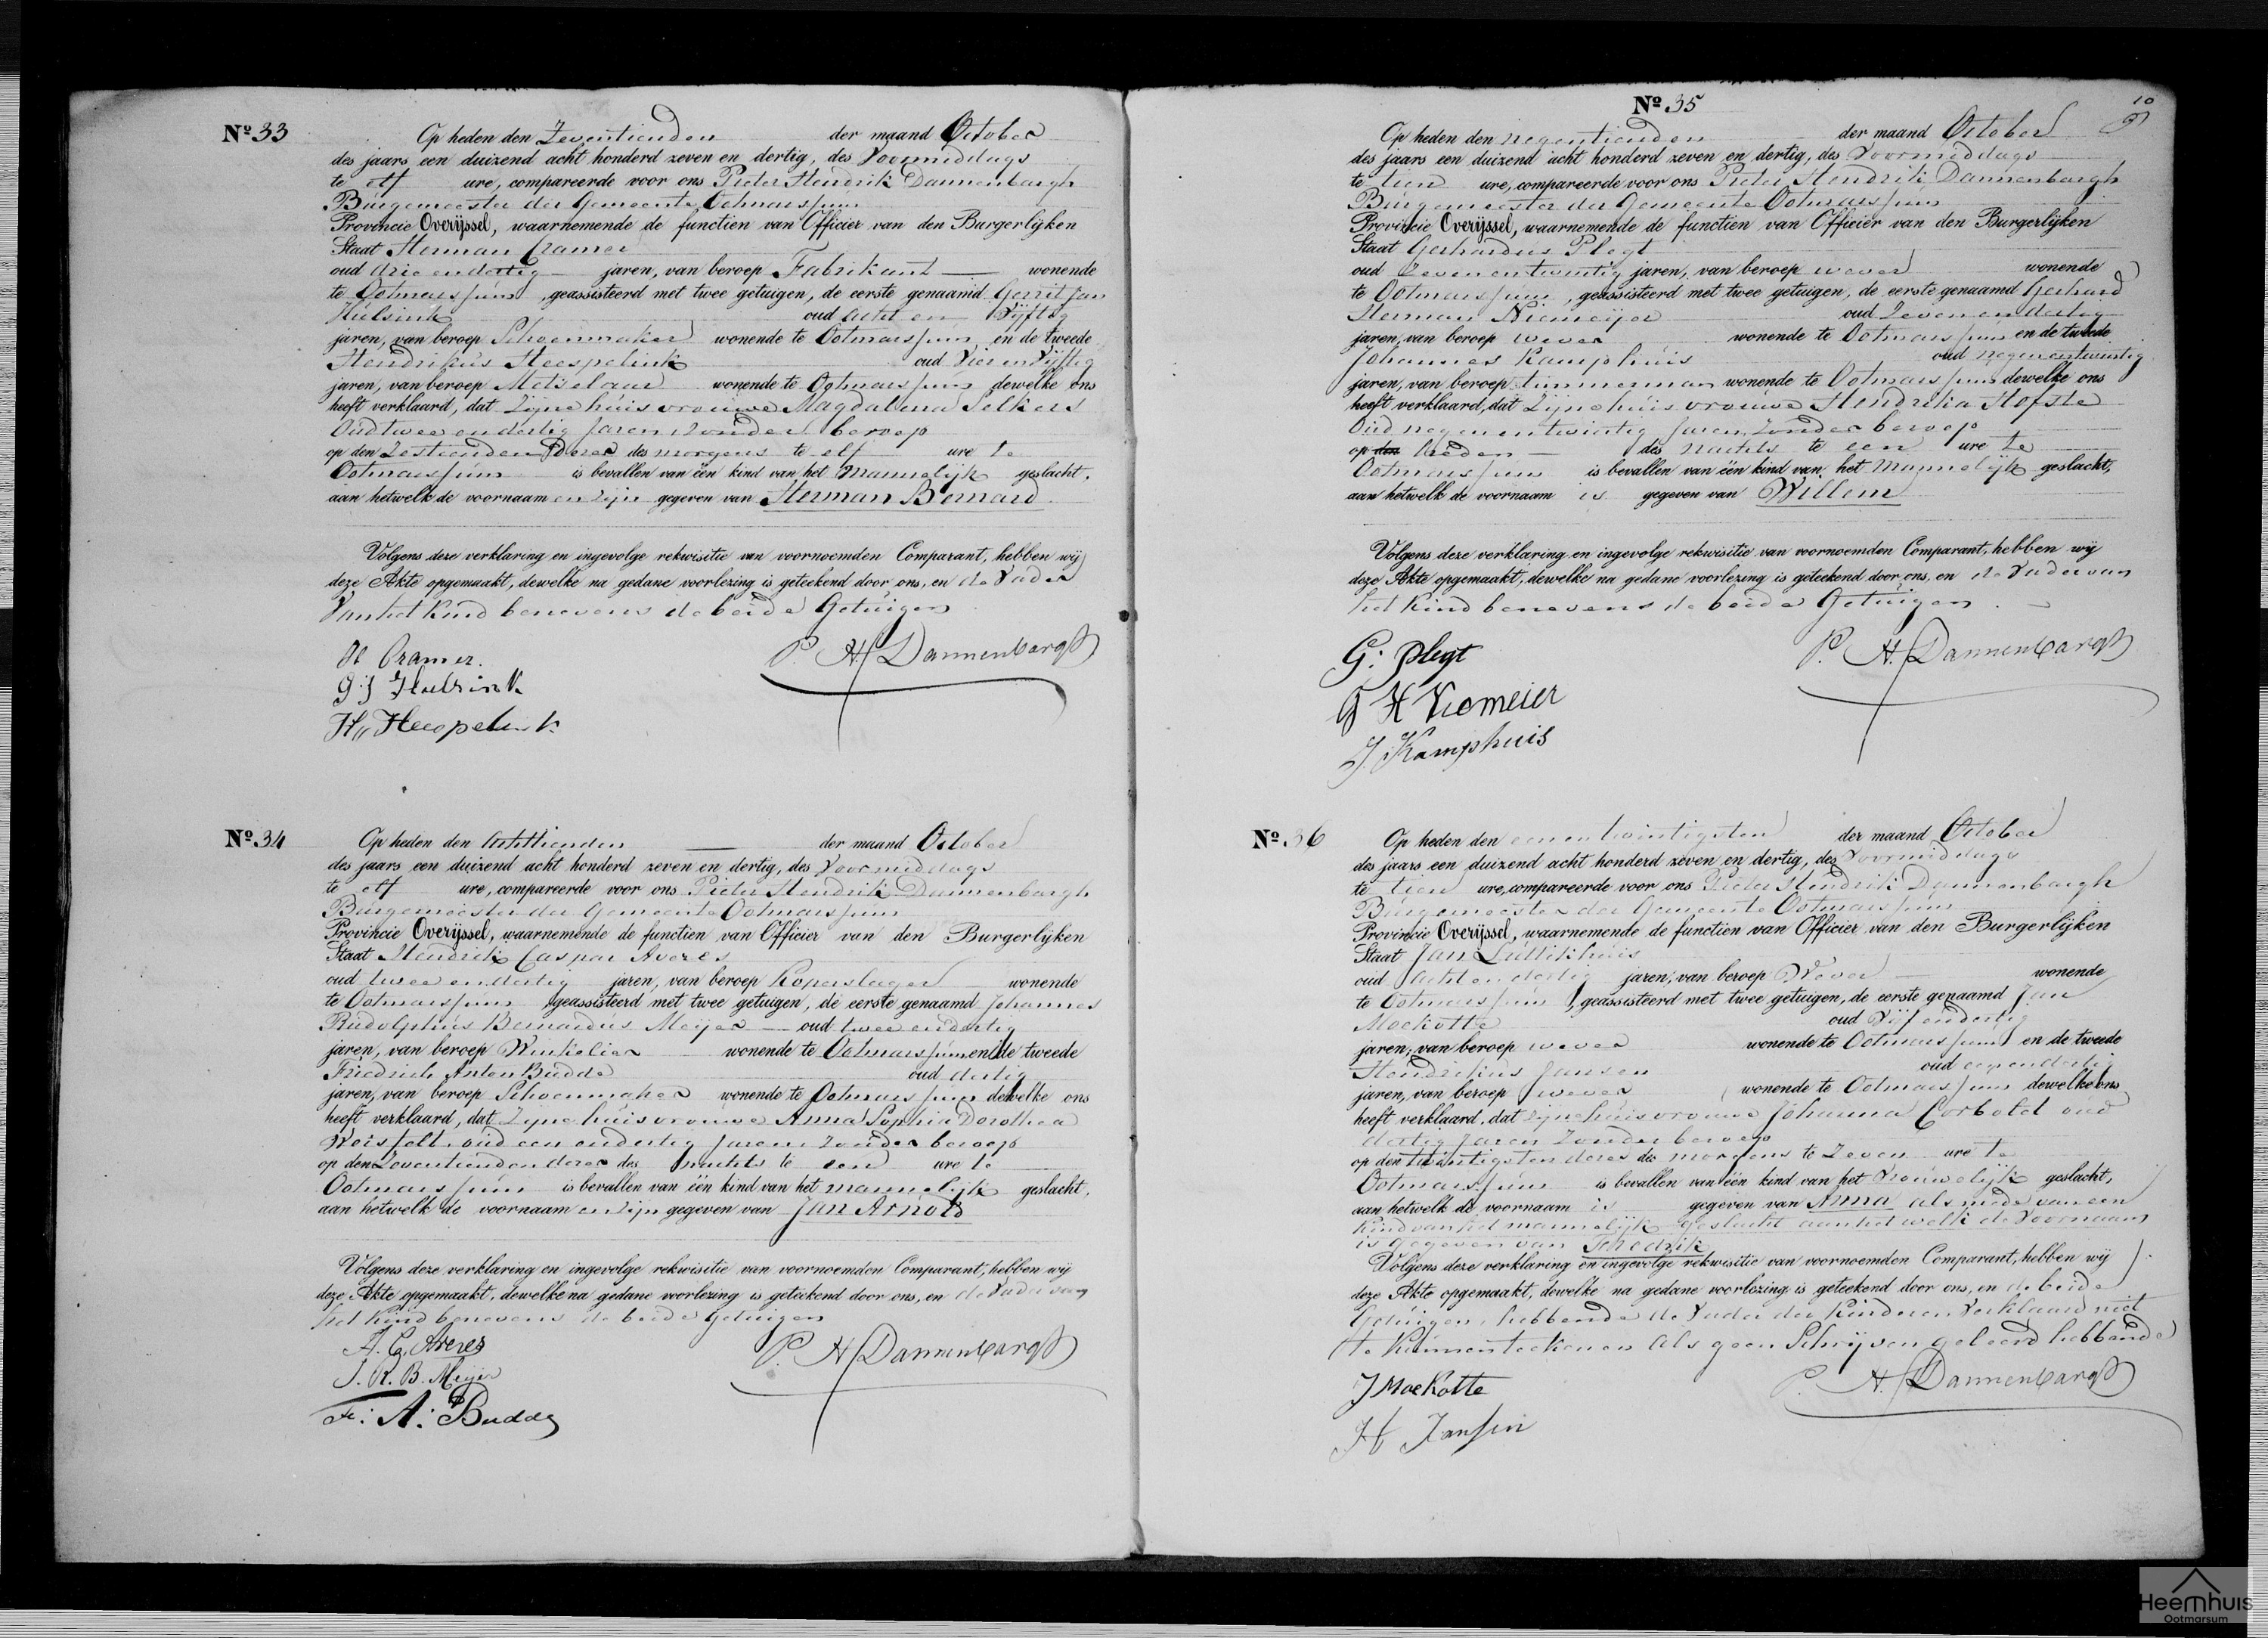 Nº 33
Op heden den Zeventienden der maand October
des jaars een duizend acht honderd zeven en dertig, des Voormiddags
te elf ure, compareerde voor ons Pieter Hendrik Dannenbargh
Burgemeester der Gemeente Ootmarssum
Provincie Overijssel, waarnemende de functien van Officier van den Burgerlijken
Staat Herman Cramer
oud drie en dertig jaren, van beroep Fabrikant wonende
te Ootmarssum, geassisteerd met twee getuigen, de eerste genaamd Gerrit Jan
Hulsink oud acht en Vijftig
jaren, van beroep Schoenmaker wonende te Ootmarssum en de tweede
Hendrikus Heespelink oud Vier en Vijftig
jaren, van beroep Metselaar wonende te Ootmarssum dewelke ons
heeft verklaard, dat Zijne huisvrouwe Magdalena Selkers
Oud twee en dertig Jaren zonder beroep
op den Zestienden dezer des morgens te elf ure te
Ootmarssum is bevallen van één kind van het Mannelijk geslacht,
aan hetwelk de voornaamen zijn gegeven van Herman Bernard
Volgens deze verklaring en ingevolge rekwisitie van voornoemden Comparant, hebben wij
deze Akte opgemaakt, dewelke na gedane voorlezing is geteekend door ons, en de Vader
Van het Kind benevens de beide Getuigen
H Cramer.
P. H. Dannenbargh
G:J Hulsink
H,, Heespelink
Nº 34
Op heden den Achttienden der maand October
des jaars een duizend acht honderd zeven en dertig, des Voormiddags
te elf ure, compareerde voor ons Pieter Hendrik Dannenbargh
Burgemeester der Gemeente Ootmarssum
Provincie Overijssel, waarnemende de functien van Officier van den Burgerlijken
Staat Hendrik Caspar Averes
oud twee en dertig jaren, van beroep Koperslager wonende
te Ootmarssum geassisteerd met twee getuigen, de eerste genaamd Johannes
Rudolphus Bernardus Meijer oud twee en dertig
jaren, van beroep Winkelier wonende te Ootmarssum en de tweede
Friedrich Anton Budde oud dertig
jaren, van beroep Schoenmaker wonende te Ootmarssum dewelke ons
heeft verklaard, dat Zijne huisvrouwe Anna Sophia Dorothea
oud een en dertig Jaren zonder beroep
op den Zeventienden dezer des nachts te een ure te
Ootmarssum is bevallen van één kind van het mannelijk geslacht,
aan hetwelk de voornaamen zijn gegeven van Jan Arnold
Volgens deze verklaring en ingevolge rekwisitie van voornoemden Comparant, hebben wij
deze Akte opgemaakt, dewelke na gedane voorlezing is geteekend door ons, en de Vader van
het Kind benevens de beide Getuigen
H. C. Averes
P. H. Dannenbargh
J. R. B. Meijer
Fr: A: Budde
10
Nº 35
Op heden den negentienden der maand October
des jaars een duizend acht honderd zeven en dertig, des Voormiddags
te tien ure, compareerde voor ons Pieter Hendrik Dannenbargh
Burgemeester der Gemeente Ootmarssum
Provincie Overijssel, waarnemende de functien van Officier van den Burgerlijken
Staat Gerhardus Plegt
oud Zeven en twintig jaren, van beroep wever wonende
te Ootmarssum, geassisteerd met twee getuigen, de eerste genaamd Gerhard
Herman Niemeijer oud Zeven en dertig
jaren, van beroep wever wonende te Ootmarssum en de tweede
Johannes Kamphuis oud negen en twintig
jaren, van beroep timmerman wonende te Ootmarssum dewelke ons
heeft verklaard, dat Zijne huisvrouwe Hendrika Hofste
Oud negen en twintig Jaren, zonder beroep
op den heden des nachts te een ure te
Ootmarssum is bevallen van één kind van het Mannelijk geslacht,
aan hetwelk de voornaam is gegeven van Willem
Volgens deze verklaring en ingevolge rekwisitie van voornoemden Comparant, hebben wij
deze Akte opgemaakt, dewelke na gedane voorlezing is geteekend door ons, en de Vader van
het Kind benevens de beide Getuigen
G: Plegt
P. H. Dannenbargh
G H Niemeier
J. Kamphuis
Nº 36
Op heden den een en twintigsten der maand October
des jaars een duizend acht honderd zeven en dertig, des Voormiddags
te tien ure, compareerde voor ons Pieter Hendrik Dannenbargh
Burgemeester der Gemeente Ootmarssum
Provincie Overijssel, waarnemende de functien van Officier van den Burgerlijken
Staat Jan Luttikhuis
oud Acht en dertig jaren, van beroep Wever wonende
te Ootmarssum, geassisteerd met twee getuigen, de eerste genaamd Jan
Moekotte oud Vijf en dertig
jaren, van beroep wever wonende te Ootmarssum en de tweede
Hendrikus Jansen oud een en dertig
jaren, van beroep wever wonende te Ootmarssum dewelke ons
heeft verklaard, dat zijne huisvrouwe Johanna Corbold oud
dertig Jaren Zonder beroep
op den twintigsten dezer des morgens te Zeven ure te
Ootmarssum is bevallen van één kind van het Vrouwelijk geslacht,
aan hetwelk de voornaam is gegeven van Anna als mede van een
Kind van het mannelijk geslacht aan het welk de Voornaam
is gegeven van
Volgens deze verklaring en ingevolge rekwisitie van voornoemden Comparant, hebben wij
deze Akte opgemaakt, dewelke na gedane voorlezing is geteekend door ons, en de beide
Getuigen, hebbende de Vader der Kinderen Verklaard niet
te kunnen teekenen als geen Schrijven geleerd hebbende
J Moekotte
P. H. Dannenbargh
H Jansen
Heemhuis
Ootmarsum